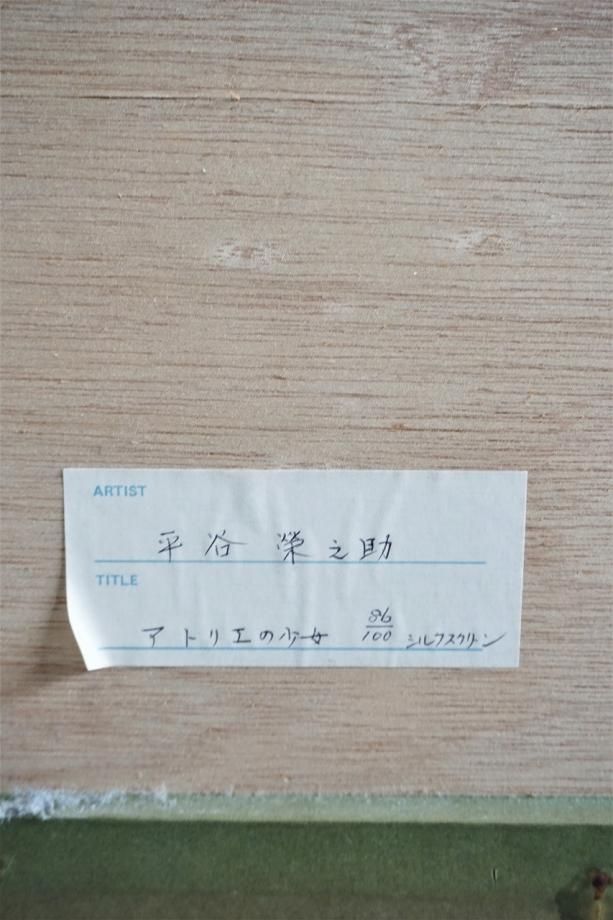 ARTIST
平谷 榮之助
TITLE
アトリエの少女 86/100 シルクスクリーン